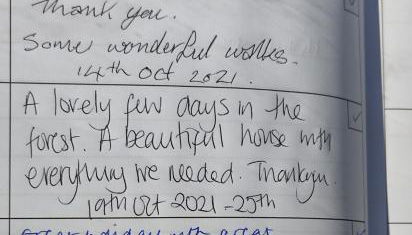 Thank you.
Some wonderful walks.
14th Oct 2021.
A lovely few days in the
forest. A beautiful house with
everything we needed. Thankyou.
19th Oct 2021 - 25th